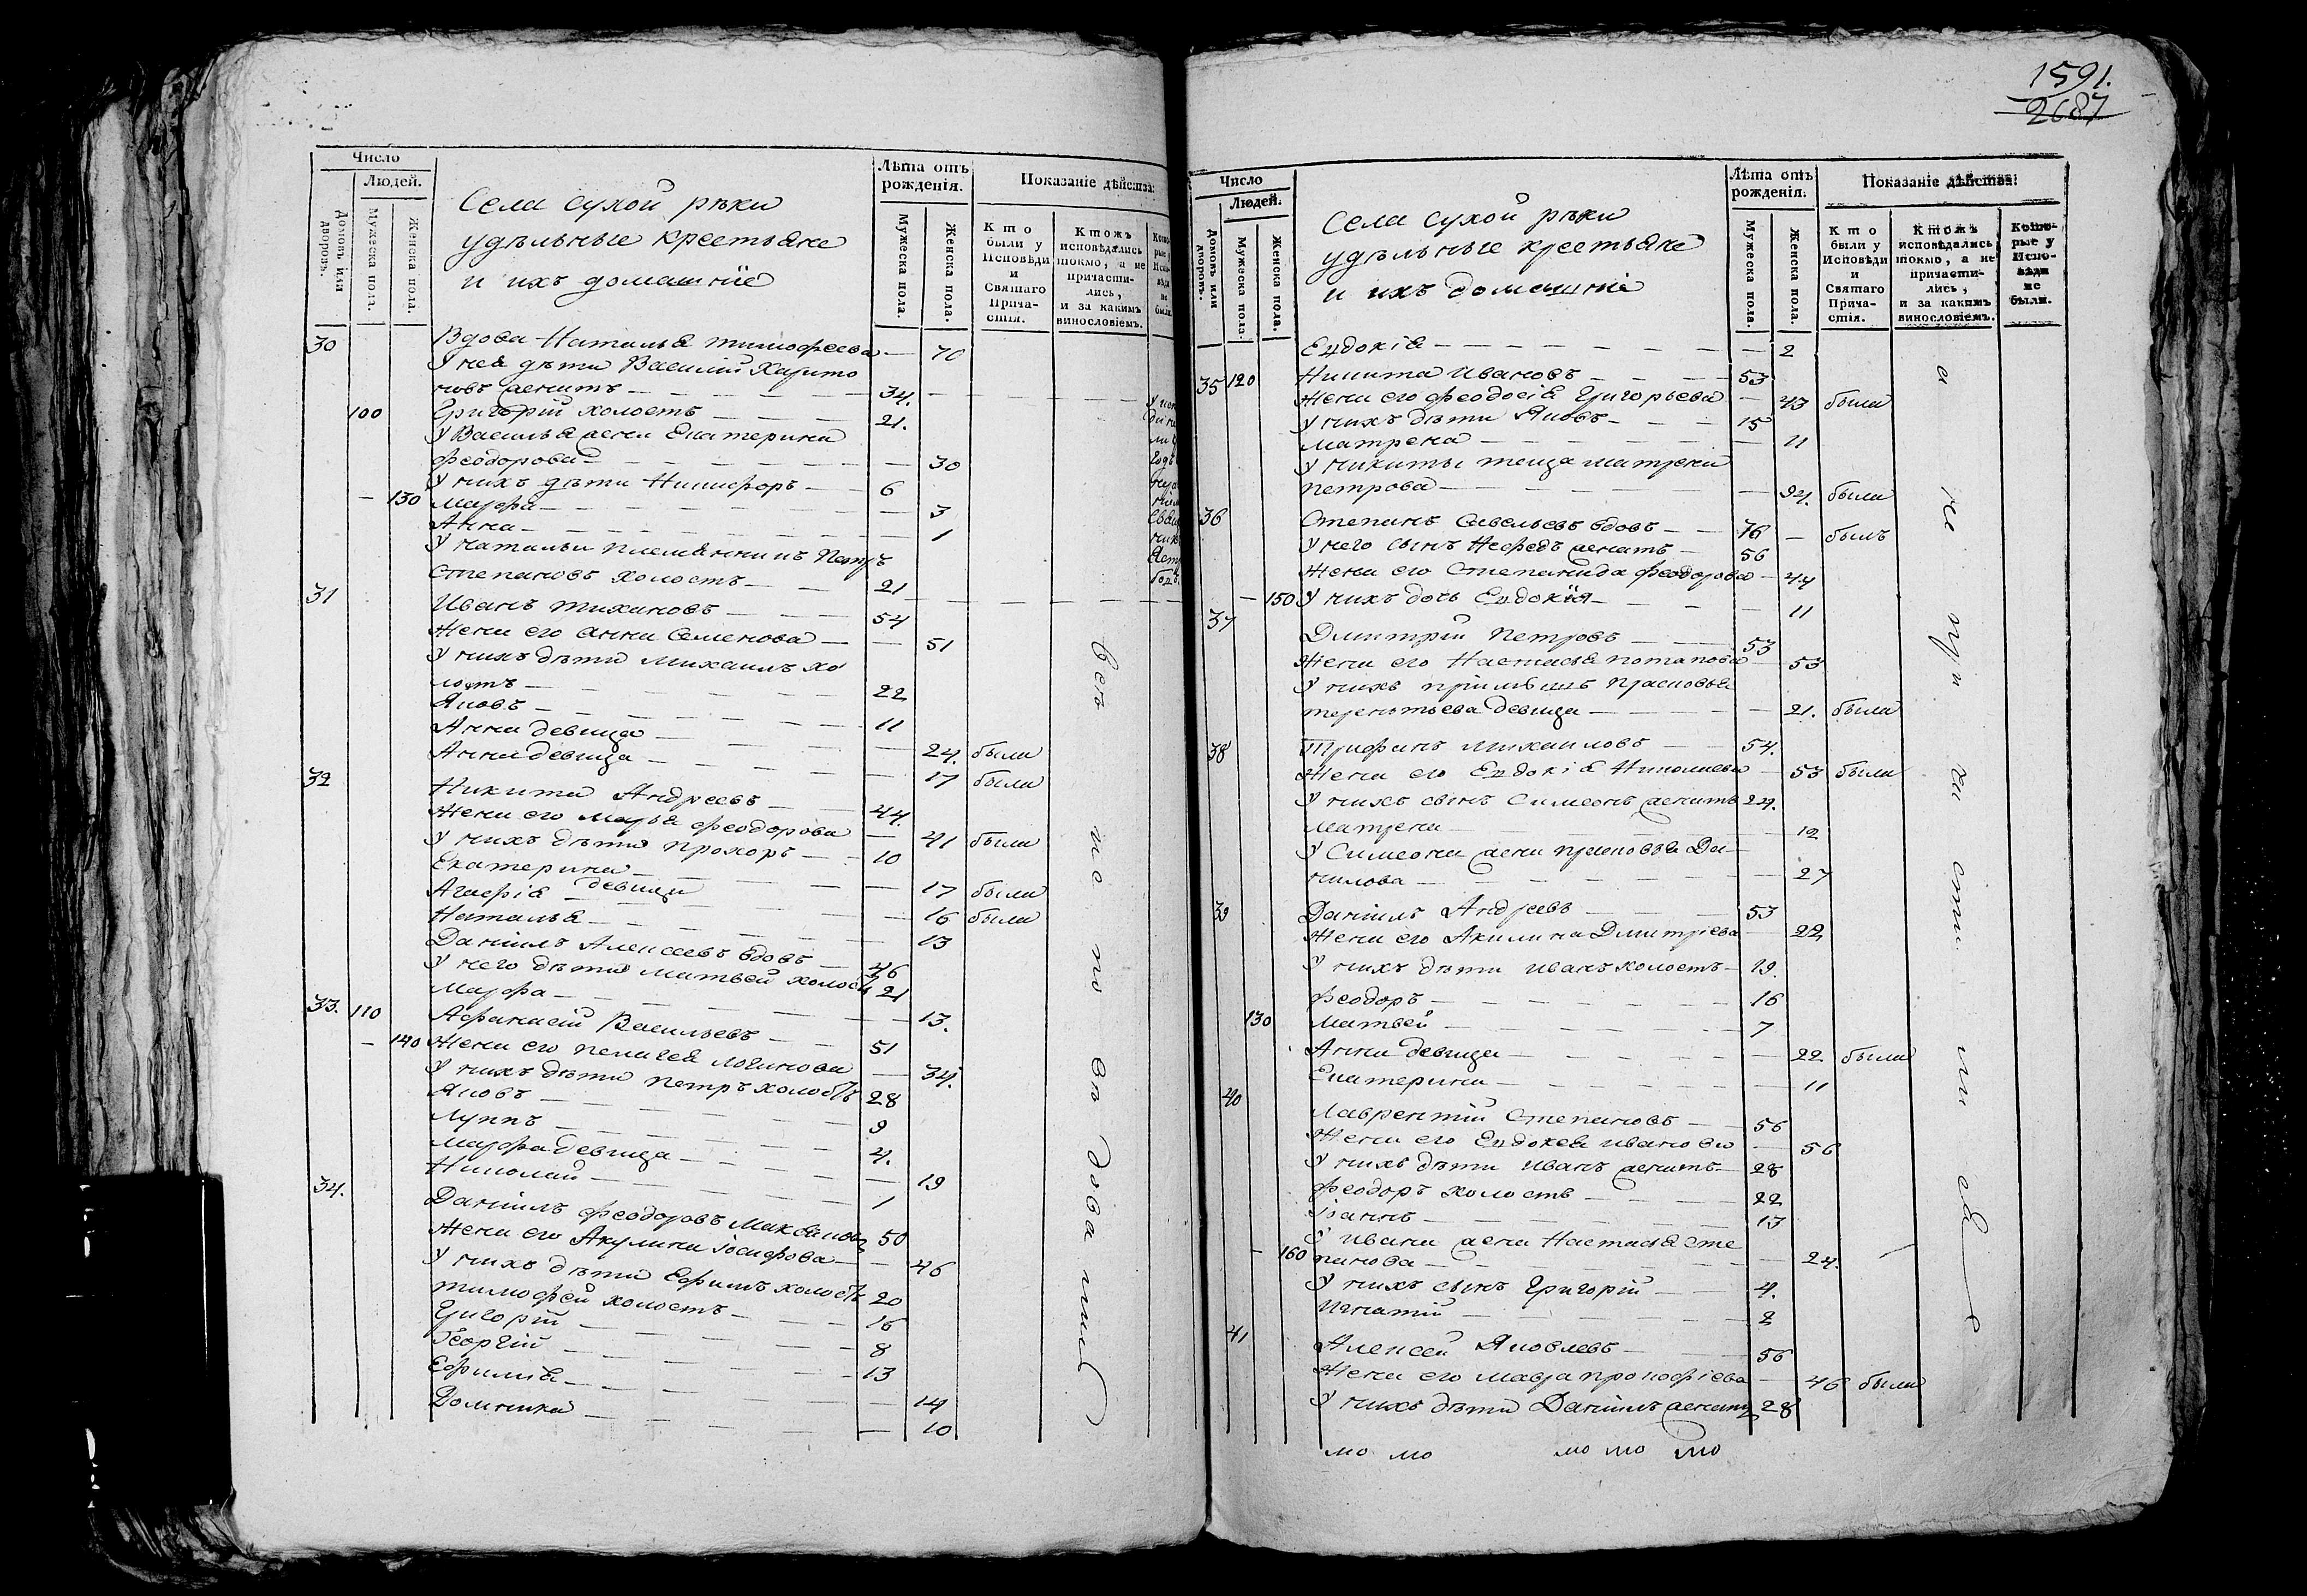 Число
Людей.
Домовъ или дворовъ.
Мужеска пола.
Женска пола.
Села сухой рѣки
удѣльные крестьяне
и ихъ домашніе
Лѣта отъ рожденія.
Мужеска пола.
Женска пола.
Показаніе дѣйства:
Кто были у Исповѣди и Святаго Причастія.
Ктожъ исповѣдались токмо, а не причастились, и за какимъ винословіемъ.
30 Вдова Наталья тимофеева — 70
У нея дѣти Василій Харито
новъ женатъ — 34.
100 Григорій холостъ — 21.
У Василья жена Екатерина
феодорова — 30
У нихъ дѣти Никифоръ — 6
— 130 Марфа — 3
Анна — 1
У натальи племянникъ Петръ
Степановъ холостъ — 21
31 Иванъ тихановъ — 54
Жена его анна Семенова — 51
У нихъ дѣти михаилъ хо
лостъ — 22
Яковъ — 11
Анна девица — 24. была
Анна девица — 17 была
32 Никита Андреевъ — 44.
Жена его марья феодорова — 41 была
У нихъ дѣти прохоръ — 10
Екатерина девица — 17 была
Агафія — 16 была
Наталья — 13
Даніилъ Алексеевъ вдовъ — 46
У него дѣти матвей холостъ 21
Марфа — 13.
33. 110 Афанасій Васильевъ — 51
— 140 Жена его пелагея логинова — 34.
У нихъ дѣти петръ холостъ 28
Яковъ — 9
Луппъ — 4.
Марфа девица — 19
Николай — 1
34. Даніилъ феодоровъ 50
Жена его Акулина іосифова — 46
У нихъ дѣти Ефимъ холостъ 20
тимофей холостъ — 16
Григорій — 8
Георгій — 13
Ефимія — 14
Домника — 10
всѣ
исповѣданіи
1591.
2687
Число
Людей.
Домовъ или дворовъ.
Мужеска пола.
Женска пола.
Села сухой рѣки
удѣльные крестьяне
и ихъ домашніе
Лѣта отъ рожденія.
Мужеска пола.
Женска пола.
Показаніе дѣйства:
Кто были у Исповѣди и Святаго Причастія.
Ктожъ исповѣдались токмо, а не причастились, и за какимъ винословіемъ.
Которые у Исповѣди не были.
Евдокія — 2
35 120 Никита Ивановъ — 53
Жена его феодосія Григорьева — 43 была
У нихъ дѣти Яковъ — 15
матрена — 11
У никиты теща матрена
петрова — 94. была
36 Степанъ Савельевъ вдовъ — 76 — былъ
У него сынъ Нефедъ женатъ — 56
Жена его Степанида феодорова — 44
— 150 У нихъ дочь Евдокія — 11
37 Дмитрій Петровъ — 53
Жена его Настасья потапова — 53
У нихъ пріимышъ прасковья
терентьева девица — 21. была
38 Трифанъ михаиловъ — 54.
Жена его Евдокія Николаева — 53 была
У нихъ сынъ Симеонъ женатъ 24.
матрена — 12
У Симеона жена прасковья Да-
нилова — 27
39 Даніилъ Андреевъ — 53
Жена его Акилина Дмитріева — 22
У нихъ дѣти иванъ холостъ — 19.
феодоръ — 16
130 Матвей — 7
Анна девица — 22 была
Екатерина — 11
40 Лаврентій Степановъ — 56
Жена его Евдокея иванова — 56
У нихъ дѣти иванъ женатъ — 28
феодоръ холостъ — 22
іоаннъ — 13
У ивана жена Настасья сте
— 160 панова — 24.
У нихъ сынъ Григорій — 4.
Игнатій — 2
41 Алексей Яковлевъ — 56
Жена его мавра прокофіева — 46 была
У нихъ дѣти Даніилъ женатъ 28
а не причастились
мо мо мо мо мо